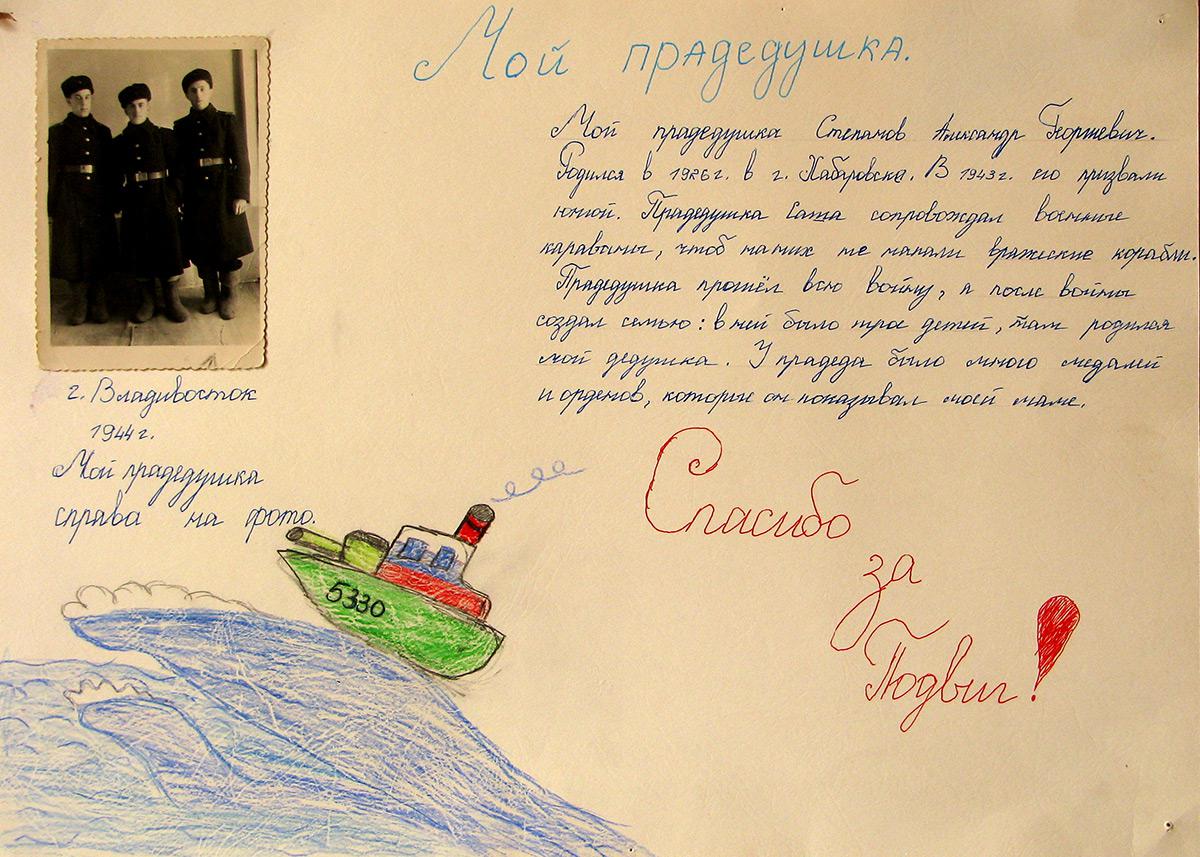 Мой прадедушка.
Мой прадедушка Степанов Александр Георгиевич.
Родился в 1926 г. в г. Хабаровске. В 1943 г. его призвали
юнгой. Прадедушка Саша сопровождал военные
караваны, чтоб на них не напали вражеские корабли.
Прадедушка прошёл всю войну, а после войны
создал семью: в ней было трое детей, там родился
мой дедушка. У прадеда было много медалей
и орденов, которые он показывал моей маме.
г. Владивосток
1944 г.
Мой прадедушка
справа на фото.
5330
Спасибо
за
Подвиг!